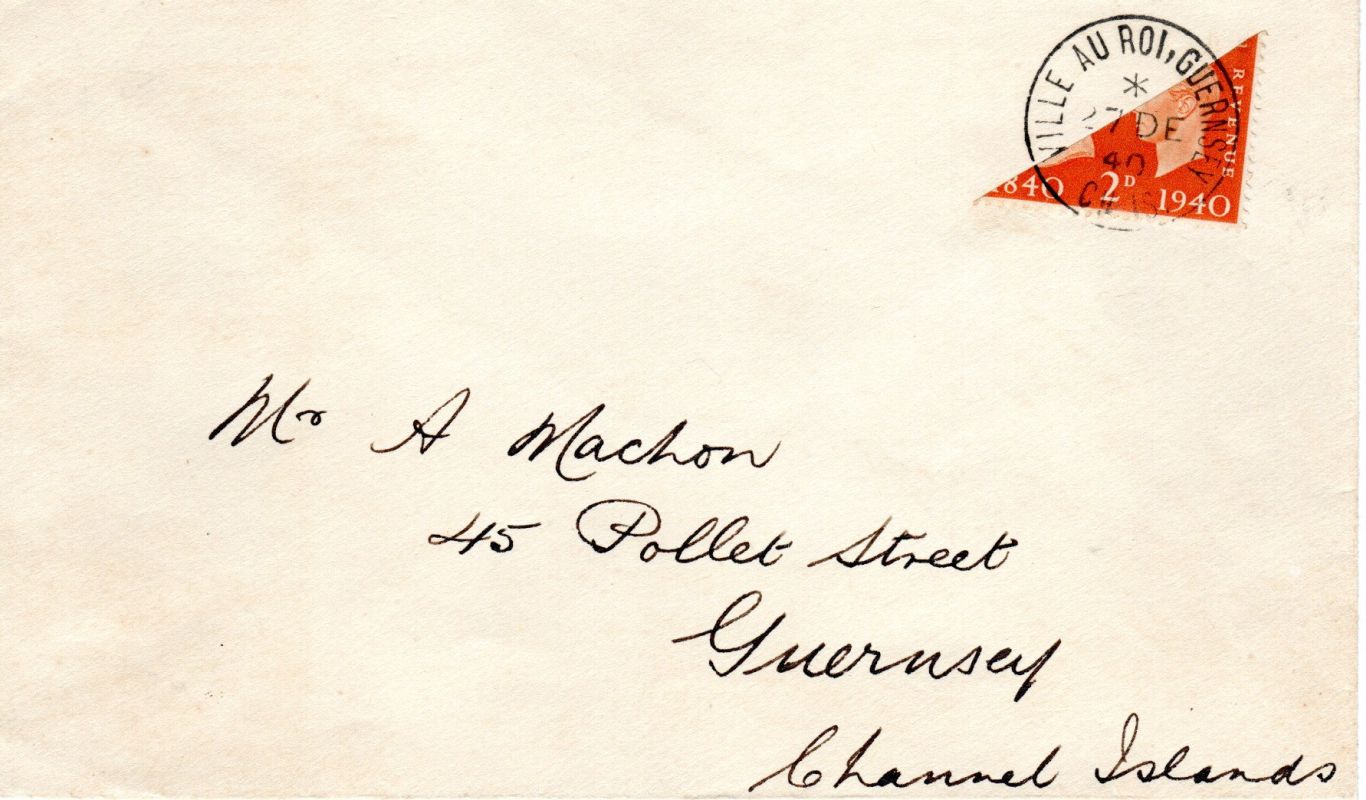 VILLE AU ROI, GUERNSEY
*
27 DE
40
REVENUE
1840 2D 1940
Mr A Machon
45 Pollet Street
Guernsey
Channel Islands